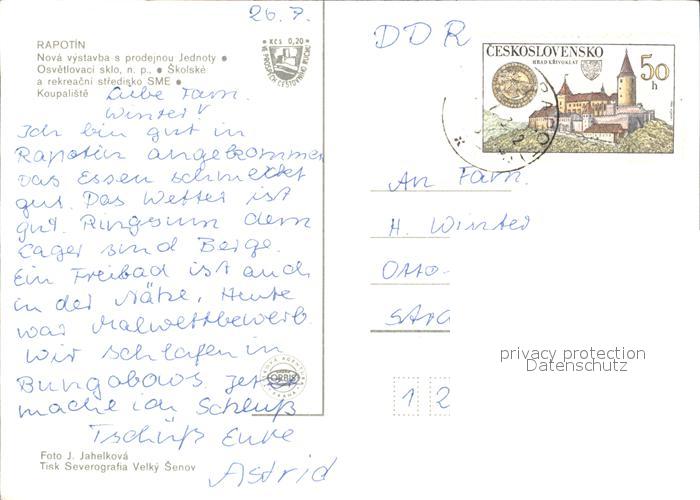 26. 7.
RAPOTÍN
Nová výstavba s prodejnou Jednoty ●
Osvětlovací sklo, n. p., ● Školské
a rekreační středisko SME ●
Koupaliště
KČS 0,20
Liebe Fam.
Winter!
Ich bin gut in
Rapotin angekommen
Das Essen schmecktet
gut. Das Wetter ist
gut. Ringsum dem
Lager sind Berge.
Ein Freibad ist auch
in der Nätze. Heute
war Malwettbewerb.
Wir schlafen in
Bungabows jetzt
mache ich Schluß
Tschüß Eure
Astrid
ORBIS
Foto J. Jahelková
Tisk Severografia Velký Šenov
DDR
ČESKOSLOVENSKO
HRAD KŘIVOKLÁT
50
h
An Fam.
H. Winter
Otto-
Stra
1 2
privacy protection
Datenschutz